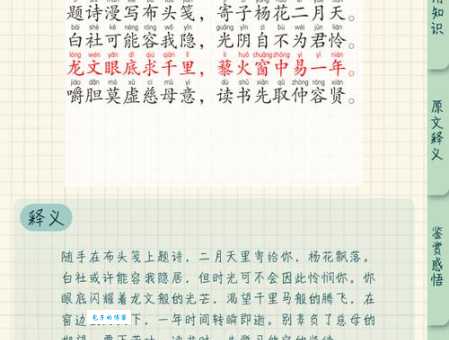 题诗漫写布头笺，寄子杨花二月天。
bái shè kě néng róng wǒ yǐn guāng yīn zì bù wéi jūn lián
白社可能容我隐，光阴自不为君怜。
lóng wén yǎn dǐ qiú qiān lǐ lí huǒ chuāng zhōng yì yī nián
龙文眼底求千里，藜火窗中易一年。
jiáo dǎn mò xū cí mǔ yì dú shū xiān qǔ zhòng róng xián
嚼胆莫虚慈母意，读书先取仲容贤。
知识
原文释义
鉴赏感悟
释义
随手在布头笺上题诗，二月天里寄给你，杨花飘落。
白社或许能容我隐居，但时光可不会因此怜悯你。你
眼底闪耀着龙文般的光芒，渴望千里马般的腾飞，在
窗边 下，一年时间转瞬即逝。别辜负了慈母的